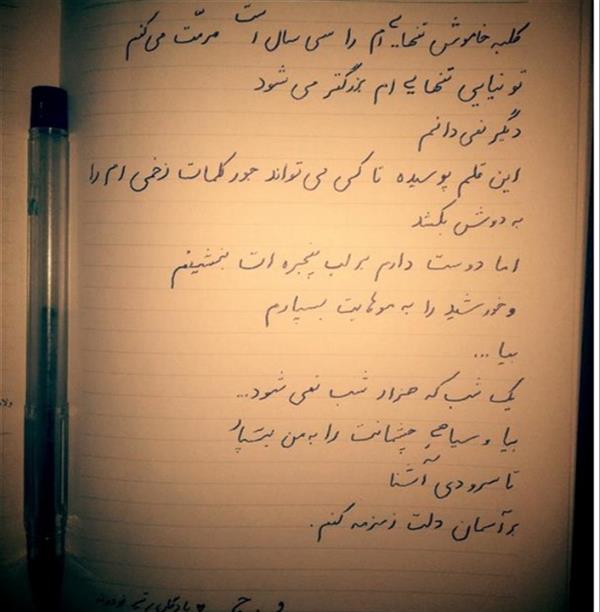 کلبه خاموش تنهایی ام را سی سال است مرمّت می‌کنم
تو نیایی تنهایی ام بزرگتر می شود
دیگر نمی دانم
این قلم پوسیده تا کی می تواند جور کلمات زخمی ام را
به دوش بکشد
اما دوست دارم بر لب پنجره ات بنشینم
و خورشید را به موهایت بسپارم
بیا ...
یک شب که هزار شب نمی شود...
بیا و سیاهیِ چشمانت را به من بسپار
تا سرودی آشنا
بر آسمان دلت زمزمه کنم.
و . ج